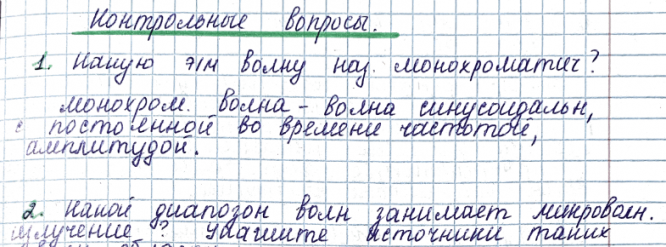 Контрольные вопросы.
1. Какую э/м волну наз. монохроматич?
монохром. волна - волна синусоидальн,
с постоянной во времени частотой,
амплитудой.
2. Какой диапозон волн занимает микроволн.
излучение? Укажите источники таких